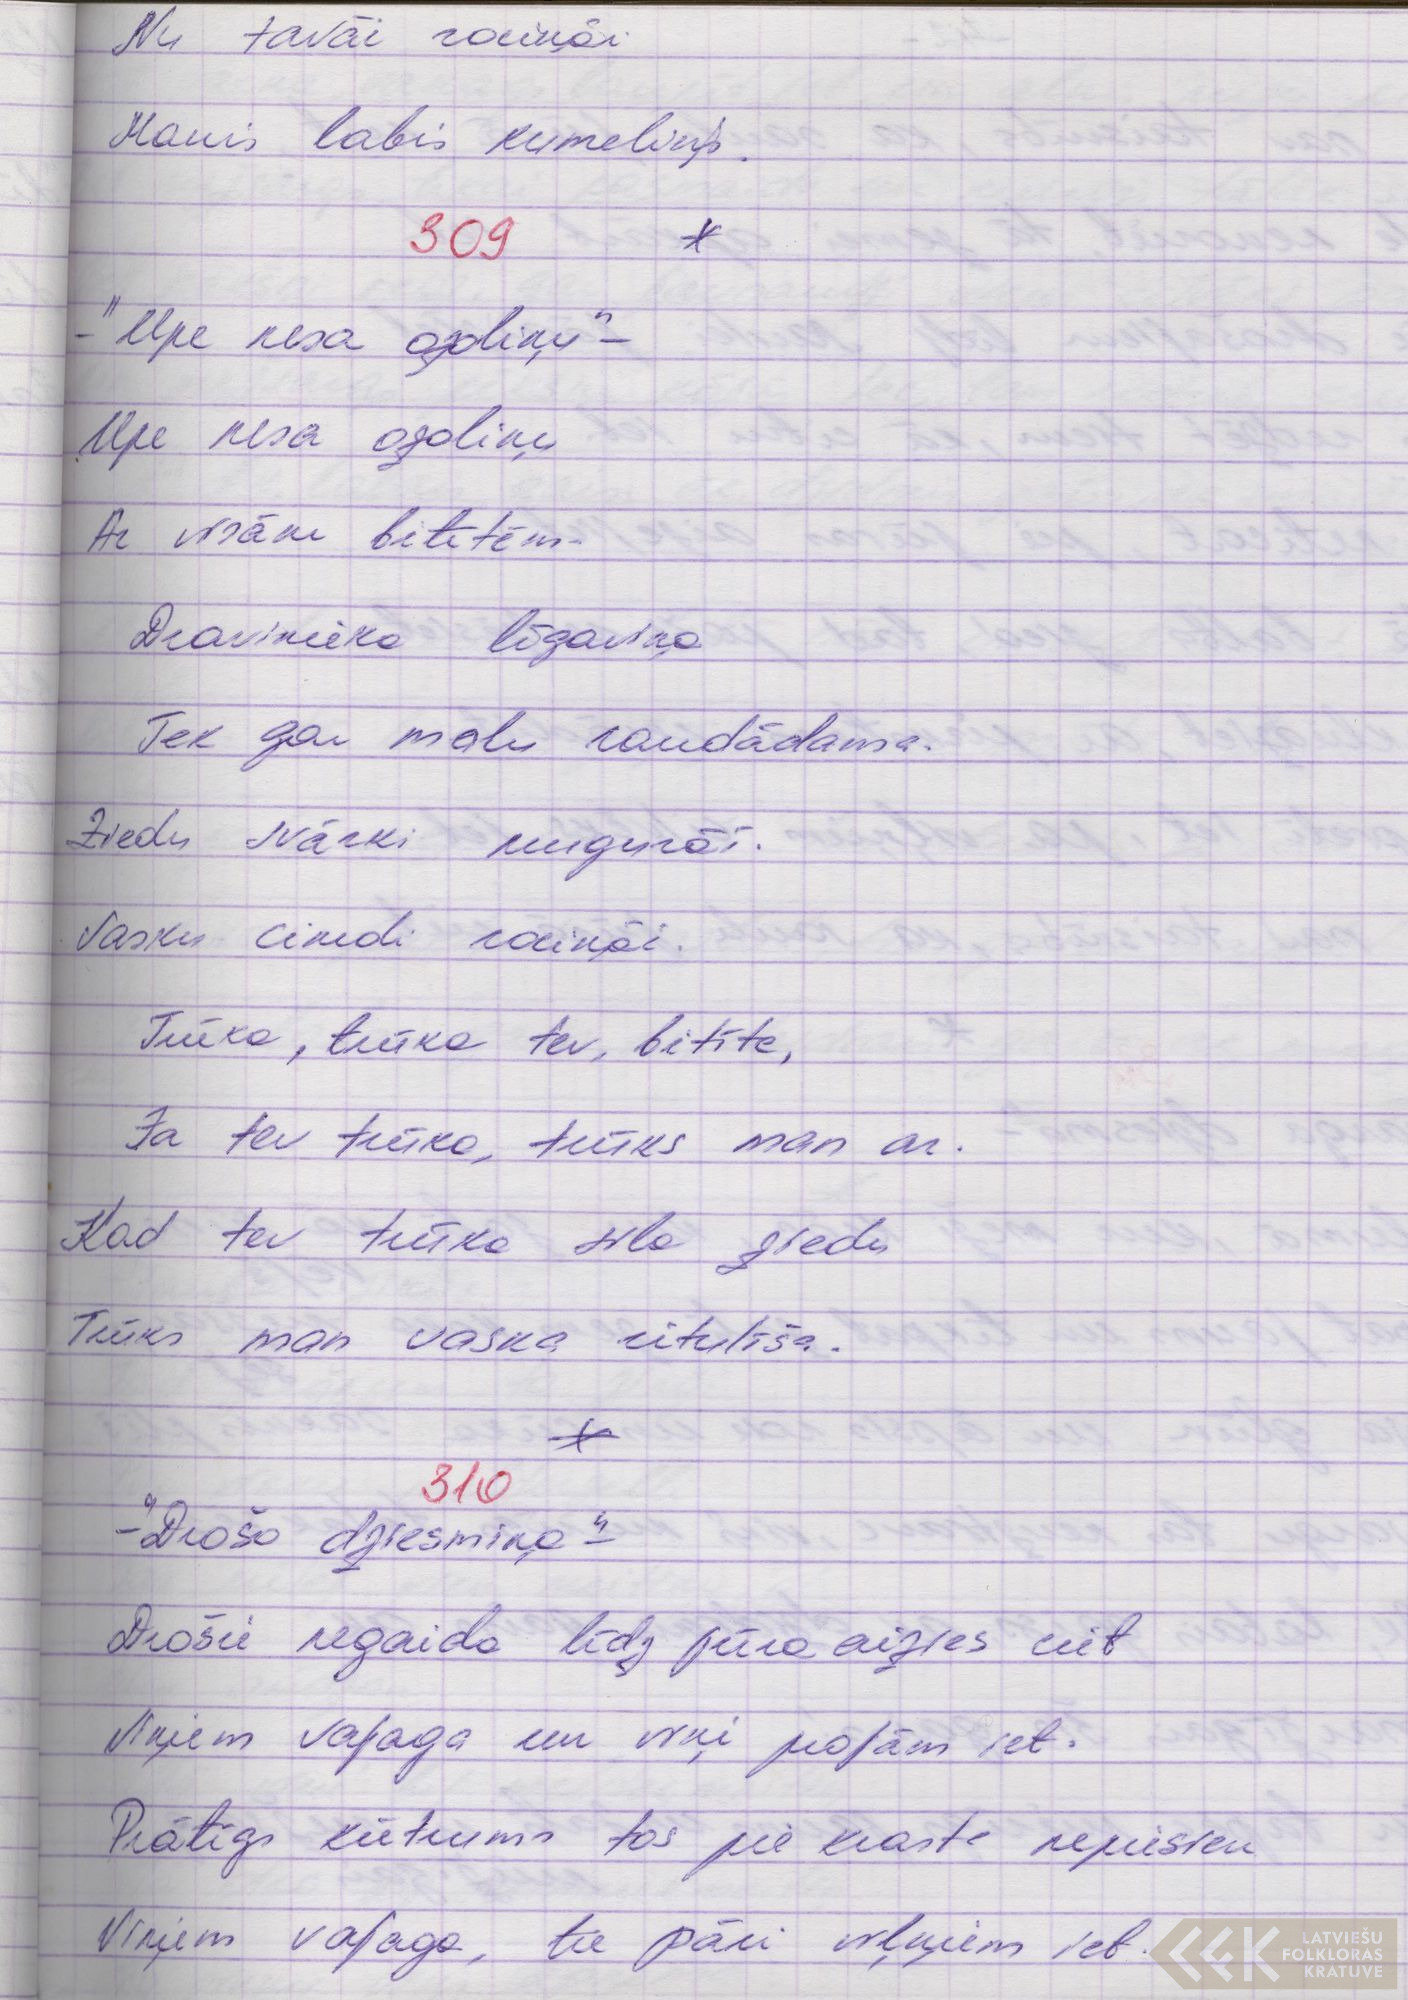 Nu tavāi rociņāi
Manis labis kumeliņš.
309 *
-"Upe nesa ozoliņu"-
Upe nesa ozoliņu
Ar visām bitītēm.
Dravinieka līgaviņa
Tek gar malu raudādama.
Ziedu svārki mugurāi.
Vasku cimdi rociņāi.
Trūka, trūka tev, bitīte,
Ja tev trūka, trūks man ar.
Kad tev trūka sila ziedu
Trūks man vaska rituliša.
*
310
-"Drošo dziesmiņa"-
Drošie negaida līdz jūra aizies riet
Viņiem vajaga un viņi projām iet.
Prātīgs kūtrums tos pie krasta nepiesien
Viņiem vajaga, tie pāri viļņiem iet.
LATVIEŠU
FOLKLORAS
KRATUVE